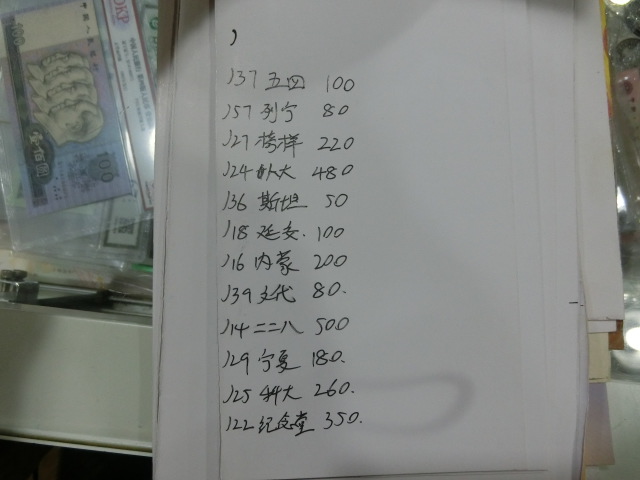 J37 五四 100
J57 列宁 80
J27 榜样 220
J24 大 480
J36 斯坦 50
J18 延安. 100
J16 内蒙 200
J39 文代 80.
J14 二二八 500
J29 宁夏 180.
J25 科大 260.
J22 纪念堂 350.
100
壹佰圆
100